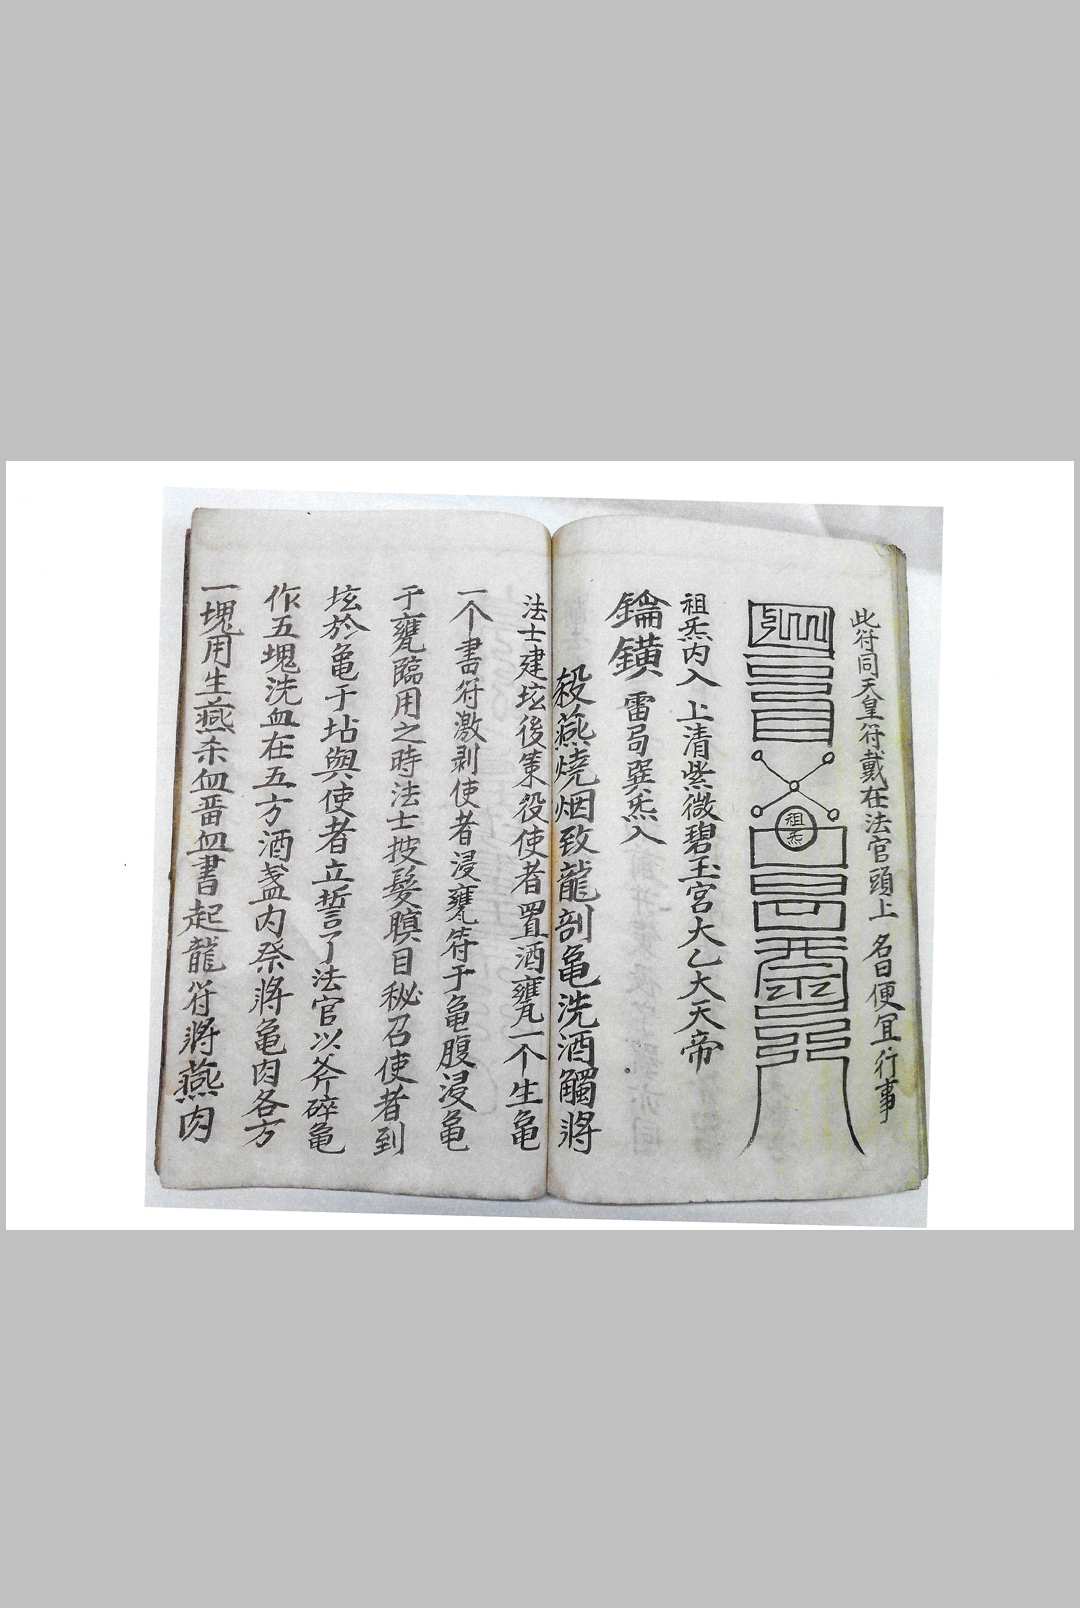 此符同天皇符戴在法官頭上 名曰便宜行事
祖炁
祖炁内入 上清紫微碧玉宮大乙大天帝
鑰鐄 雷局巽炁入
殺燕燒烟致龍剖亀洗酒觸將
法士建垓後策役使者置酒甕一个生亀
一个書符激剥使者浸甕符于亀腹浸亀
于甕臨用之時法士披髮瞑目秘召使者到
垓於亀于坫與使者立誓了法官以斧碎亀
作五塊洗血在五方酒盞内祭將亀肉各方
一塊用生燕杀血畨血書起龍符將燕肉